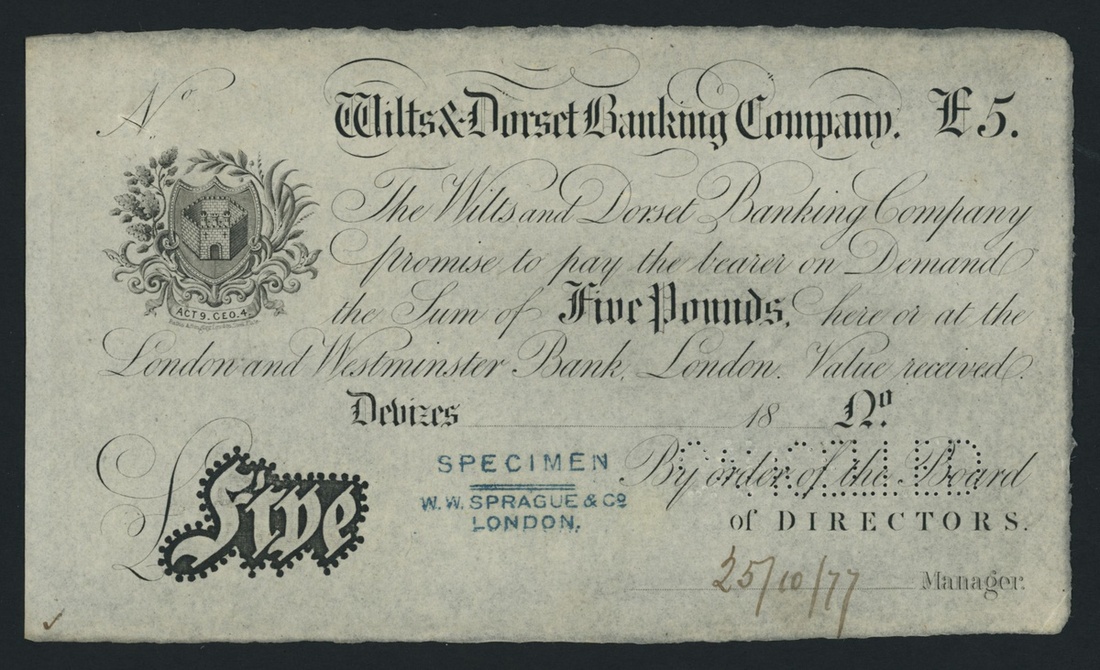 No
Wilts & Dorset Banking Company. £5.
The Wilts and Dorset Banking Company
promise to pay the bearer on Demand
the Sum of Five Pounds, here or at the
London and Westminster Bank, London. Value received.
ACT 9. GEO. 4.
Devizes 18 No.
£Five
SPECIMEN
W. W. SPRAGUE & Co
LONDON.
By order of the Board
of DIRECTORS.
25/10/77 Manager.